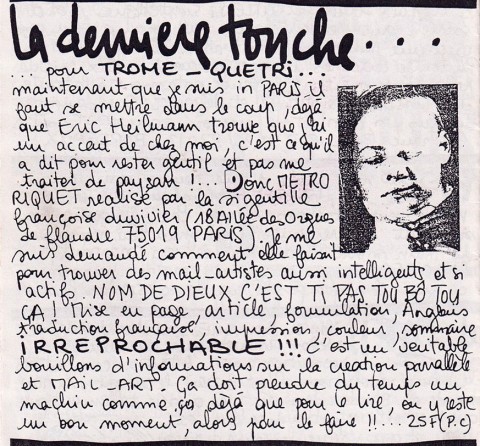 la derniere touche....
... pour TROME _ QUETRI...
maintenant que je suis in PARIS il
faut se mettre dans le coup, deja
que Eric Heilmann trouve que j'ai
un accent de chez moi, c'est ce qu'il
a dit pour rester gentil et pas me
traiter de paysan !... Donc METRO
RIQUET realise par la si gentille
françoise duvivier (18 Allée des Orgues
de flandre 75019 PARIS) Je me
suis demandé comment elle faisait
pour trouver des mail-artistes aussi intelligents et si
actifs. NOM DE DIEUX C'EST TI PAS TOU BÔ TOU
ÇA! Mise en page, article, formulation, Anglais
traduction française, impression, couleur, sommaire
IRREPROCHABLE !!! c'est un veritable
bouillons d'informations sur la creation parallèle
et MAIL-ART. Ça doit prendre du temps un
machin comme ça deja que pour le lire, on y reste
un bon moment, alors pour le faire !!... 25F (P.C)